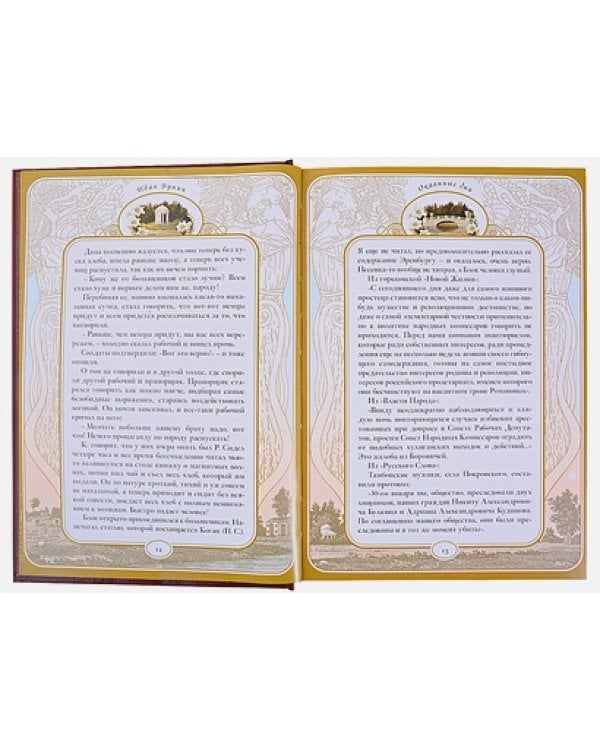 Иван Бунин
Дама поспешно жалуется, что она теперь без ку-
ска хлеба, имела раньше школу, а теперь всех уче-
ниц распустила, так как их нечем кормить:
– Кому же от большевиков стало лучше? Всем
стало хуже и первым делом нам же, народу!
Перебивая ее, наивно вмешалась какая-то нама-
занная сучка, стала говорить, что вот-вот немцы
придут и всем придется расплачиваться за то, что
натворили.
– Раньше, чем немцы придут, мы вас всех пере-
режем, – холодно сказал рабочий и пошел прочь.
Солдаты подтвердили: «Вот это верно!» – и тоже
отошли.
О том же говорили и в другой толпе, где спори-
ли другой рабочий и прапорщик. Прапорщик ста-
рался говорить как можно мягче, подбирая самые
безобидные выражения, стараясь воздействовать
логикой. Он почти заискивал, и все-таки рабочий
кричал на него:
– Молчать побольше вашему брату надо, вот
что! Нечего пропаганду по народу распускать!
К. говорит, что у них вчера опять был Р. Сидел
четыре часа и все время бессмысленно читал чью-
то валявшуюся на столе книжку о магнитных вол-
нах, потом пил чай и съел весь хлеб, который
им выдали. Он по натуре кроткий, тихий и уж совсем
не нахальный, а теперь приходит и сидит без вся-
кой совести, поедает весь хлеб с полным невнимани-
ем к хозяевам. Быстро падает человек!
Блок открыто присоединился к большевикам. На-
печатал статью, которой восхищается Коган (П. С.).
12
Окаянные дни
Я еще не читал, но предположительно рассказал ее
содержание Эренбургу – и оказалось, очень верно.
Песенка-то вообще не хитрая, а Блок человек глупый.
Из горьковской «Новой Жизни»:
«С сегодняшнего дня даже для самого наивного
простеца становится ясно, что не только о каком-ни-
будь мужестве и революционном достоинстве, но
даже о самой элементарной честности применительно
к политике народных комиссаров говорить не
приходится. Перед нами компания авантюристов,
которые ради собственных интересов, ради промедле-
ния еще на несколько недель агонии своего гибну-
щего самодержавия, готовы на самое постыдное
предательство интересов родины и революции, ин-
тересов российского пролетариата, именем которого
они бесчинствуют на вакантном троне Романовых».
Из «Власти Народа»:
«Ввиду неоднократно наблюдающихся и каж-
дую ночь повторяющихся случаев избиения арес-
тованных при допросе в Совете Рабочих Депута-
тов, просим Совет Народных Комиссаров оградить от
подобных хулиганских выходок и действий...»
Это жалоба из Боровичей.
Из «Русского Слова»:
Тамбовские мужики, села Покровского, составили
протокол:
«30-го января мы, общество, преследовали двух
хищников, наших граждан Никиту Александрови-
ча Булкина и Адриана Александровича Кудинова.
По соглашению нашего общества, они были пре-
следованы и в тот же момент убиты».
13